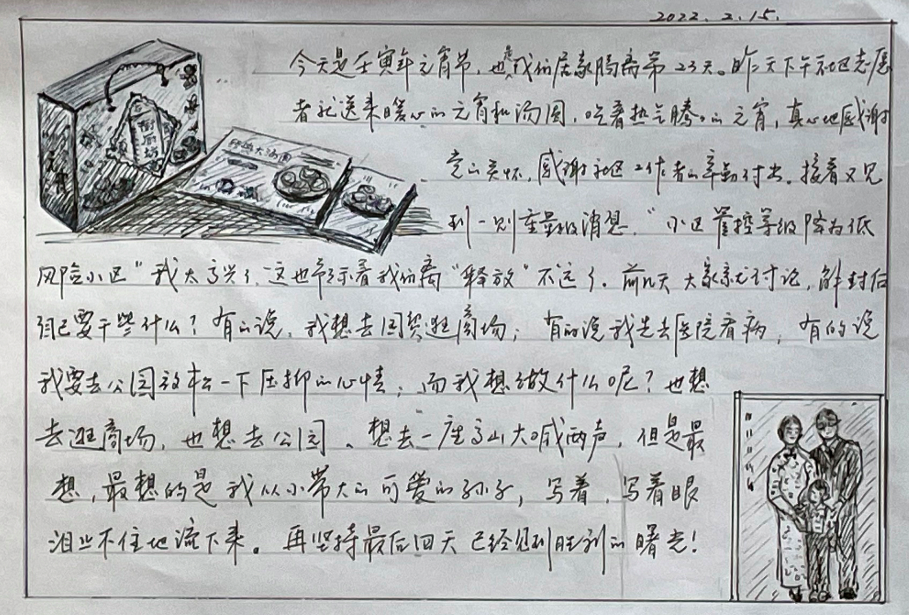 2022.2.15.
今天是壬寅年元宵节，也是我们居家隔离第23天。昨天下午社区志愿
者就送来暖心的元宵和汤圆，吃着热气腾腾的元宵，真心地感谢
党的关怀，感谢社区工作者的辛勤付出。接着又见
到一则重量级消息，“小区管控等级降为低
风险小区”我太高兴了，这也预示着我们离“释放”不远了。前几天大家就讨论，解封后
自己要干些什么？有的说，我想去逛商场；有的说我先去医院看病，有的说
我要去公园放松一下压抑的心情；而我想做什么呢？也想
去逛商场，也想去公园、想去一座高山大喊两声，但是最
想，最想的是我从小带大的可爱的孙子，写着，写着眼
泪止不住地流下来。再坚持最后四天已经见到胜利的曙光！
元宵
大汤圆